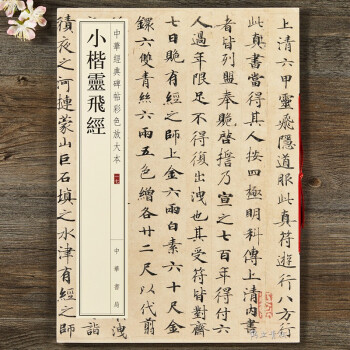 中華經典碑帖彩色放大本
小楷靈飛經
中華書局
上清六甲靈飛隱道服此真符遊行八方行
此真書當得其人按四極明科傳上清內書
者皆列盟奉貺啓誓乃宣之七百年得付六
人過年限足不得復出洩也其受符皆對齋
七日貺有經之師上金六兩白素六十尺金
鐶六雙青絲六兩五色繒各廿二尺以代翦
髮歃血登壇之誓
積夜之河捷蒙山巨石填之水津有經之師